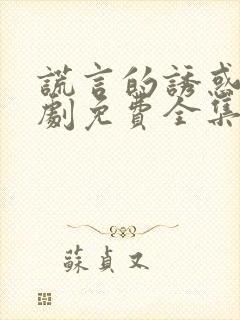 謊言的誘惑
劇免費全集
蘇貞又